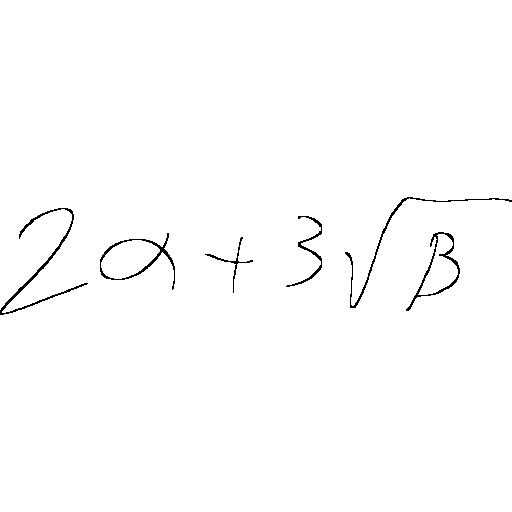 2α + 3√β